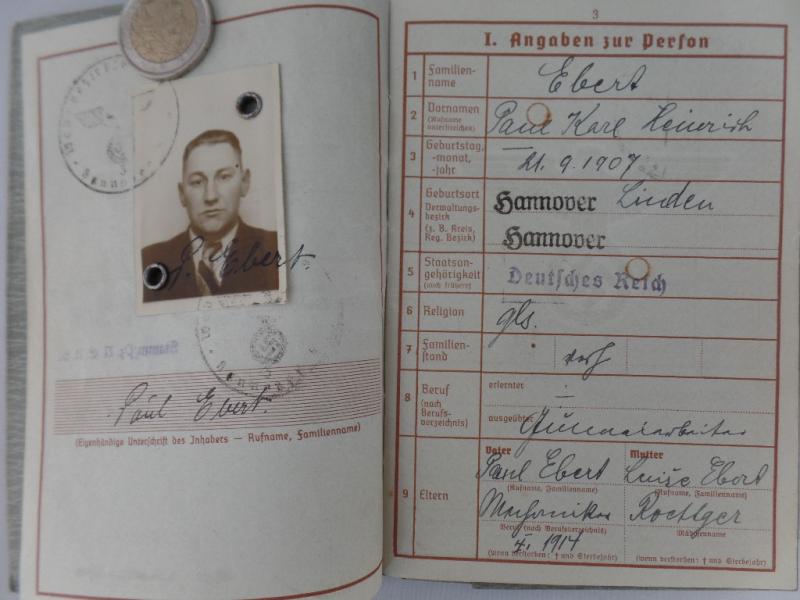 P. Ebert.
Paul Ebert.
(Eigenhändige Unterschrift des Inhabers — Rufname, Familienname)
3
I. Angaben zur Person
1 Familien-
name
Ebert
2 Vornamen
(Rufname
unterstreichen)
Paul Karl Heinrich
3 Geburtstag,
-monat,
-jahr
21. 9. 1907
4 Geburtsort
Verwaltungs-
bezirk
(z. B. Kreis,
Reg. Bezirk)
Hannover Linden
Hannover
5 Staatsan-
gehörigkeit
(auch frühere)
Deutsches Reich
6 Religion
gls.
7 Familien-
stand
verh
8 Beruf
(nach
Berufs-
verzeichnis)
erlernter
—
ausgeübter
Gummiarbeiter
9 Eltern
Vater Mutter
Paul Ebert Luise Ebert
(Rufname, Familienname) (Rufname, Familienname)
Mechaniker Roettger
Beruf (nach Berufsverzeichnis) Mädchenname
1914
(wenn verstorben: † und Sterbejahr) (wenn verstorben: † und Sterbejahr)